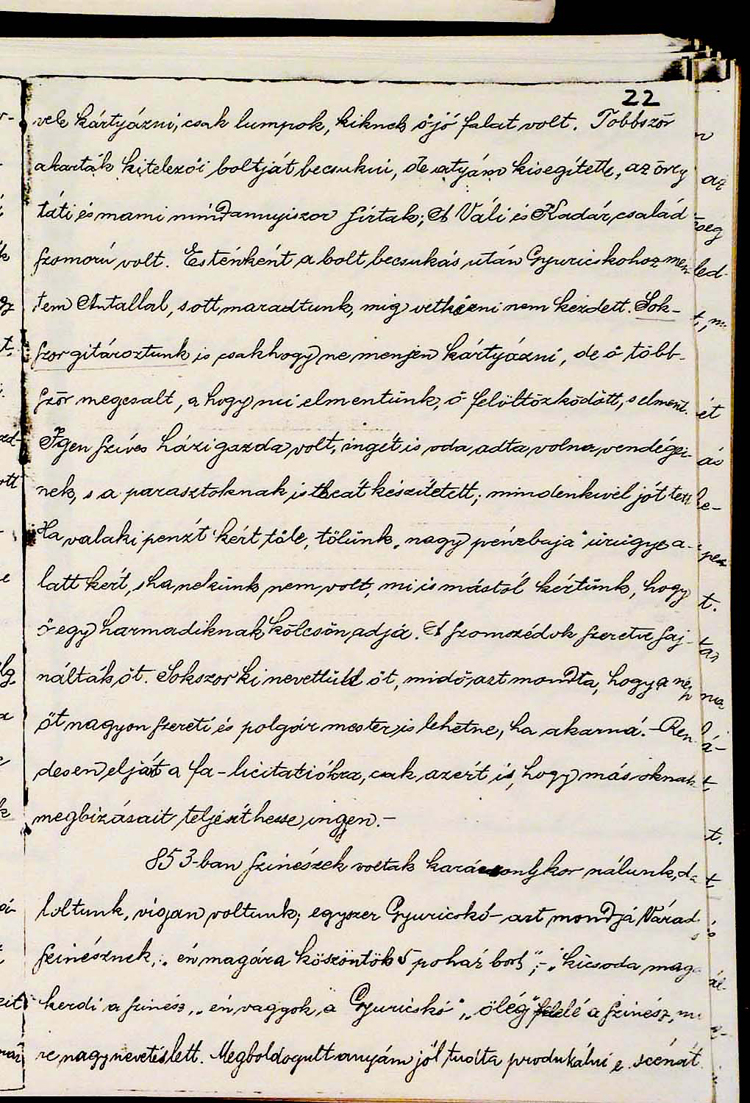 22
vele kártyázni, csak lumpok, kiknek ő jó falat volt. Többször
akarták hitelezői boltját becsukni, de atyám kisegítette, az öreg
táti és mami mindannyiszor sírtak; A Váli és Kadár család
szomorú volt. Esténként a bolt becsukás után Gyuricskohoz men-
tem Antallal, s ott maradtunk, mig vetkőzni nem kezdett. Sok-
szor gitároztunk is csakhogy ne menjen kártyázni, de ő több-
ször megcsalt, a hogy mi elmentünk, ő felöltözködött, s elment.
Igen szíves házi gazda volt, ingét is oda adta volna vendégei-
nek, s a parasztoknak is theát készíttetett; mindenkivel jót tett
Ha valaki penzt kért tőle, tőlünk „nagy pénzbaja" ürügye a-
latt kért, s ha nekünk nem volt, mi is mástól kértünk, hogy
ő egy harmadiknak kölcsön adjá. A szomszédok szeretve saj-
nálták őt. Sokszor ki nevettük őt, midőn azt mondta, hogy a nép
őt nagyon szereti és polgár mester is lehetne, ha akarná. – Ren
desen eljárt a fa-licitatiókra, csak azért is, hogy másoknak
megbizásait teljesíthesse ingyen. –
853-ban szinészek voltak karácsonykor nálunk, da
loltunk, vigan voltunk; egyszer Gyuricskó – azt mondjá Várad
szinésznek, „én magára köszöntök 5 pohár bort"; – „kicsoda maga
kerdi a szinész, „én vagyok a Gyuricskó", „öleg" felelé a szinész, mi
re nagy nevetés lett. Megboldogult anyám jól tudta produkálni e scénát